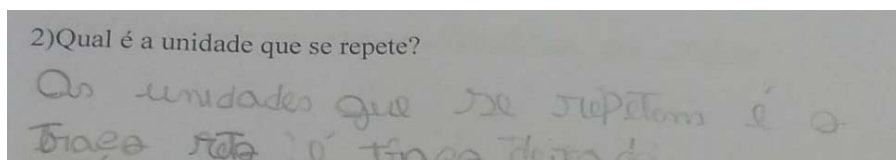 2)Qual é a unidade que se repete?
As unidades que se repetem é o
traço reto